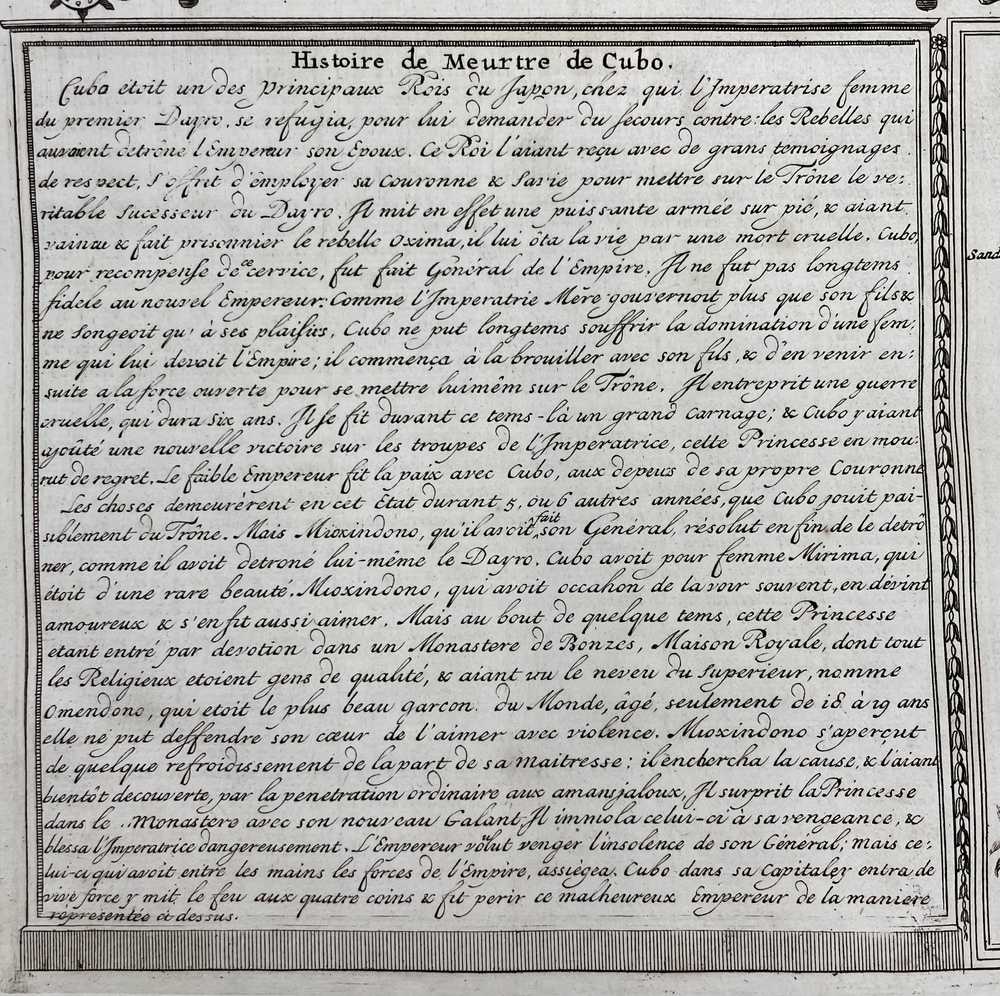 Histoire de Meurtre de Cubo.
Cubo étoit un des principaux Rois du Japon, chez qui l'Imperatrise femme
du premier Dayro, se refugia, pour lui demander du secours contre les Rebelles qui
avoient detrôné l'Empereur son Epoux. Ce Roi l'aiant reçu avec de grans temoignages
de respect, s'offrit d'êmployer sa Couronne & sa vie pour mettre sur le Trône le ve-
ritable sucesseur du Dayro. Il mit en effet une puissante armée sur pié, & aiant
vaincu & fait prisonnier le rebelle Oxima, il lui ôta la vie par une mort cruelle. Cubo,
pour recompense de ce cervice, fut fait Général de l'Empire. Il ne fut pas longtems
fidele au nouvel Empereur: Comme l'Imperatrie Mère gouvernoit plus que son fils &
ne songeoit qu'à ses plaisirs, Cubo ne put longtems souffrir la domination d'une fem-
me qui lui devoit l'Empire; il commença à la brouiller avec son fils, & d'en venir en-
suite a la force ouverte pour se mettre lui mêm sur le Trône. Il entreprit une guerre
cruelle, qui dura six ans. Il se fit durant ce tems-là un grand carnage; & Cubo y aiant
ajoûté une nouvelle victoire sur les troupes de l'Imperatrice, cette Princesse en mou-
rut de regret. Le faible Empereur fit la paix avec Cubo, aux depens de sa propre Couronne
Les choses demeurérent en cet État durant 5, ou 6 autres années, que Cubo jouit pai-
siblement du Trône. Mais Mioxindono, qu'il avoit fait son Général, résolut en fin de le detrô
ner, comme il avoit detroné lui-même le Dayro. Cubo avoit pour femme Mirima, qui
étoit d'une rare beauté. Mioxindono, qui avoit occasion de la voir souvent, en dévint
amoureux & s'en fit aussi aimer. Mais au bout de quelque tems, cette Princesse
etant entré par devotion dans un Monastere de Bonzes, Maison Royale, dont tout
les Religieux etoient gens de qualité, & aiant vu le neveu du Superieur, nommé
Omendono, qui etoit le plus beau garcon du Monde, âgé, seulement de 18 à 19 ans
elle ne put deffendre son cœur de l'aimer avec violence. Mioxindono s'aperçut
de quelque refroidissement de la part de sa maitresse; il en chercha la cause, & l'aiant
bientôt decouverte, par la penetration ordinaire aux amans jaloux, Il surprit la Princesse
dans le Monastere avec son nouveau Galant, Il immola celui-ci à sa vengeance, &
blessa l'Imperatrice dangereusement. L'Empereur voulut venger l'insolence de son Général; mais ce-
lui-ci qui avoit entre les mains les forces de l'Empire, assiégea Cubo dans sa Capitale y entra de
vive force y mit le feu aux quatre coins & fit perir ce malheureux Empereur de la maniere
representée ci dessus.
Sand